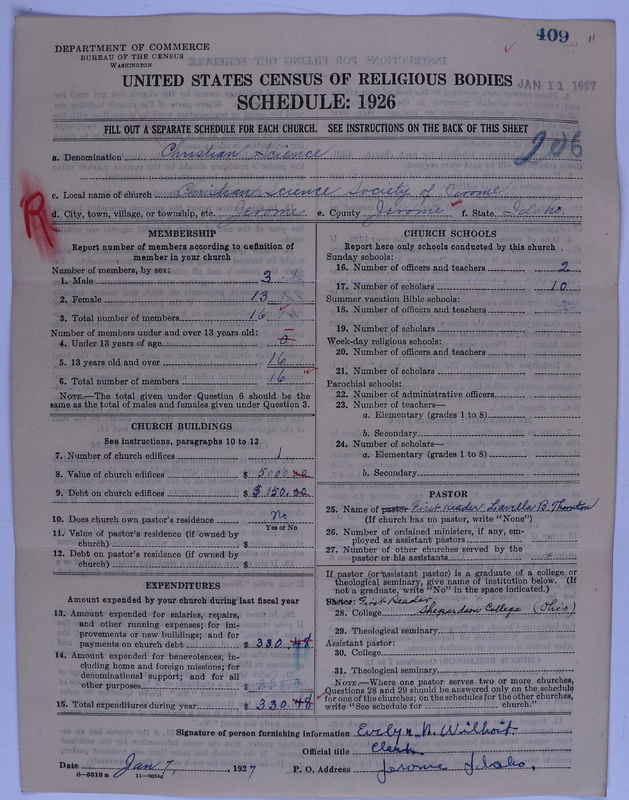 409
DEPARTMENT OF COMMERCE
BUREAU OF THE CENSUS
WASHINGTON
UNITED STATES CENSUS OF RELIGIOUS BODIES
JAN 11 1927
SCHEDULE: 1926
FILL OUT A SEPARATE SCHEDULE FOR EACH CHURCH. SEE INSTRUCTIONS ON THE BACK OF THIS SHEET
206
a. Denomination Christian Science
c. Local name of church Christian Science Society of Jerome
R
d. City, town, village, or township, etc. Jerome e. County Jerome f. State Idaho.
MEMBERSHIP
Report number of members according to definition of
member in your church
Number of members, by sex:
1. Male 3
2. Female 13
3. Total number of members 16
Number of members under and over 13 years old:
4. Under 13 years of age 0
5. 13 years old and over 16
6. Total number of members 16
NOTE.—The total given under Question 6 should be
same as the total of males and females given under Question 3.
CHURCH BUILDINGS
See instructions, paragraphs 10 to 12
7. Number of church edifices 1
8. Value of church edifices $ 5000.00
9. Debt on church edifices $ $150.00
10. Does church own pastor's residence No
Yes or No
11. Value of pastor's residence (if owned by
church) $
12. Debt on pastor's residence (if owned by
church) $
EXPENDITURES
Amount expended by your church during last fiscal year
13. Amount expended for salaries, repairs,
and other running expenses; for im-
provements or new buildings; and for
payments on church debt $ 330.48
14. Amount expended for benevolences, in-
cluding home and foreign missions; for
denominational support; and for all
other purposes $
15. Total expenditures during year $ 330.48
CHURCH SCHOOLS
Report here only schools conducted by this church
Sunday schools:
16. Number of officers and teachers 2
17. Number of scholars 10
Summer vacation Bible schools:
18. Number of officers and teachers
19. Number of scholars
Week-day religious schools:
20. Number of officers and teachers
21. Number of scholars
Parochial schools:
22. Number of administrative officers
23. Number of teachers—
a. Elementary (grades 1 to 8)
b. Secondary
24. Number of scholars—
a. Elementary (grades 1 to 8)
b. Secondary
PASTOR
25. Name of pastor First Reader B. Thornton
(If church has no pastor, write "None")
26. Number of ordained ministers, if any, em-
ployed as assistant pastors
27. Number of other churches served by the
pastor or his assistants
If pastor (or assistant pastor) is a graduate of a college or
theological seminary, give name of institution below. (If
not a graduate, write "No" in the space indicated.)
Pastor: First Reader
28. College Shepardson College (Ohio)
29. Theological seminary
Assistant pastor:
30. College
31. Theological seminary
NOTE.—Where one pastor serves two or more churches,
Questions 28 and 29 should be answered only on the schedule
for one of the churches; on the schedules for the other churches,
write "See schedule for church."
Signature of person furnishing information Evelyn N. Wilhoit.
Official title Clerk
Date Jan 7, 1927 P. O. Address Jerome Idaho.
8—5518a 11—9654a